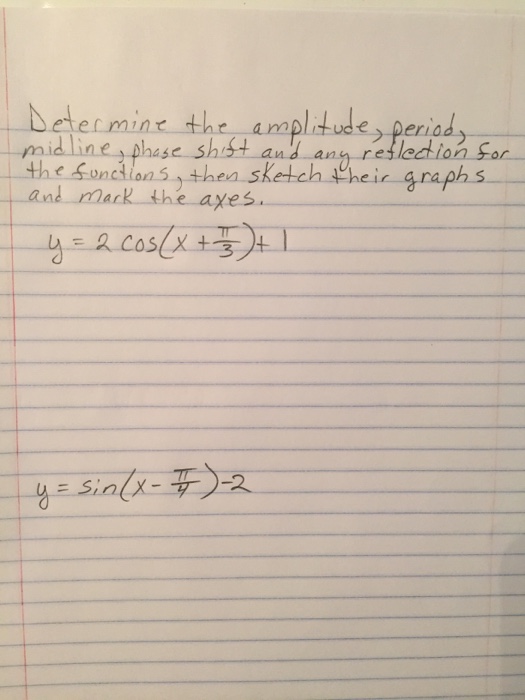 Determine the amplitude, period,
midline, phase shift and any reflection for
the functions, then sketch their graphs
and mark the axes.
y = 2 cos(x + π/3) + 1
y = sin(x - π/4) - 2